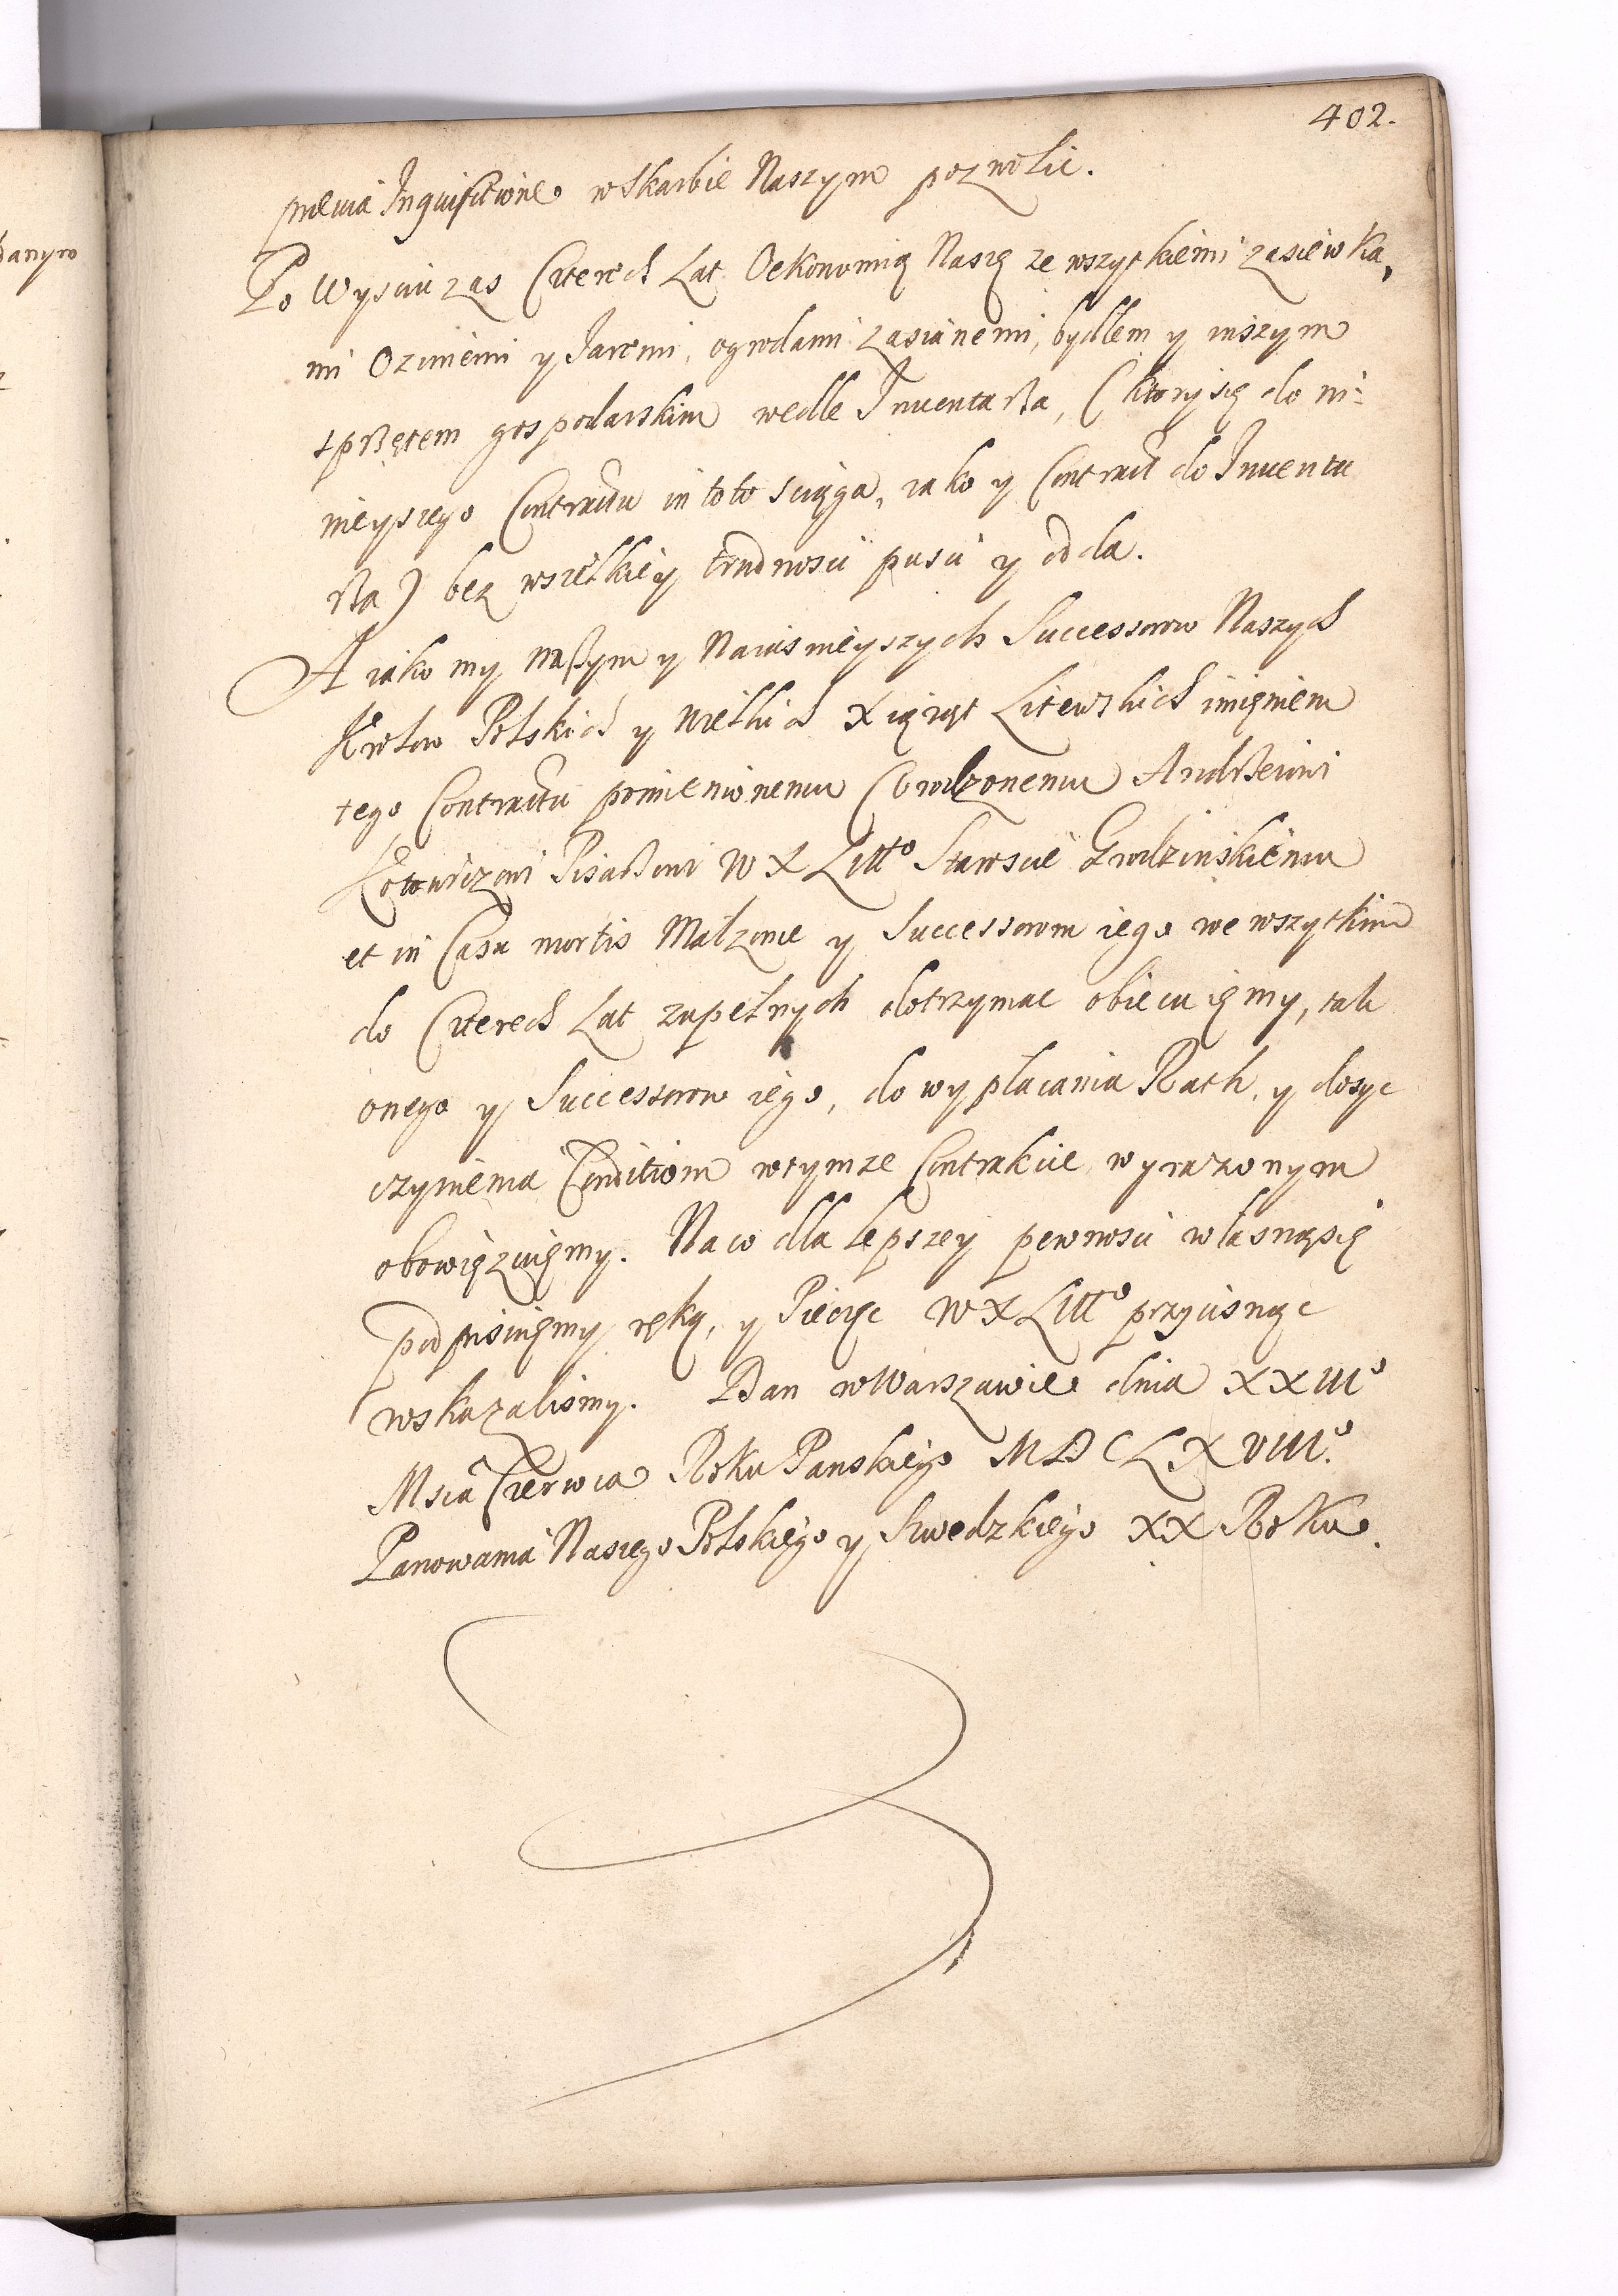 402.
danym
praevia Inquisitione w Skarbie Naszym pozwolic.
Po Wysciu zas Czterech Lat Oekonomią Naszę ze wszytkiemi zasiewka,
mi Oziniemi y Jaremi, ogrodami zasianemi, bydłem y inszym
sprzętem gospodarskim wedle Inwentarza, (ktory się do ni:
nieyszego Contractu in toto sciąga, iako y Contract do Inwenta
rza) bez wszelkiey trudnosci pusci y odda.
A iako my naszym y Naiasnieyszych Successorow Naszych
Krolow Polskich y Wielkich Xiążąt Litewskich imięniem
tego Contractu pomienionemu Urodzonemu Andrzeiowi
Kotowiczowi Pisarzowi W X Litto Staroscie Grodzinskiemu
et in Casu mortis Małzonce y Successorom iego we wszytkim
do Czterech Lat zupełnych dotrzymac obiecuięmy, tak
onego y Successorow iego, do wypłacania Rath, y dosyc
czynienia Conditiom wtymze Contrakcie wyrazonym
obowięzuięmy. Na co dla lepszey pewnosci własnąsię
podpisuięmy ręką, y Pieczęc W X Litto przycisnąc
wskazalismy. Dan w Warszawie dnia XXIIIo
Msca Czerwca Roku Panskiego MDCLXVIIIo.
Panowania Naszego Polskiego y Szwedzkiego XX Roku.